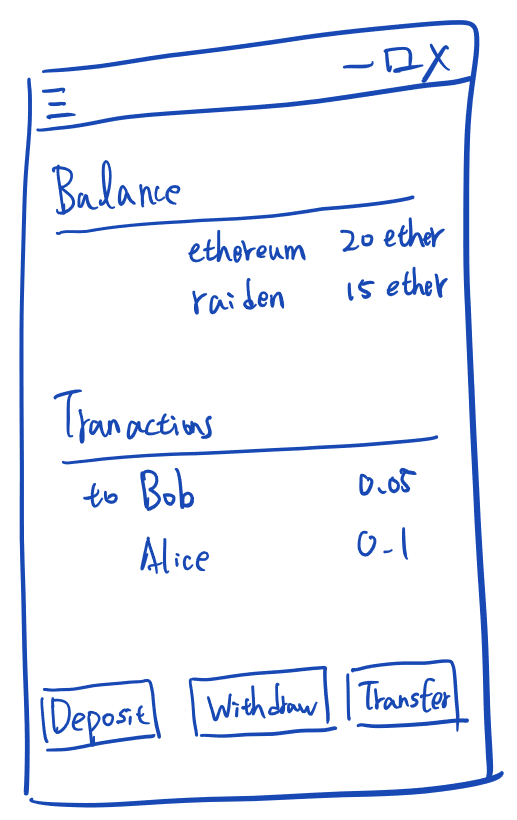 Balance
ethoreum 20 ether
raiden 15 ether
Tranactions
to Bob 0.05
Alice 0.1
Deposit Withdraw Transfer